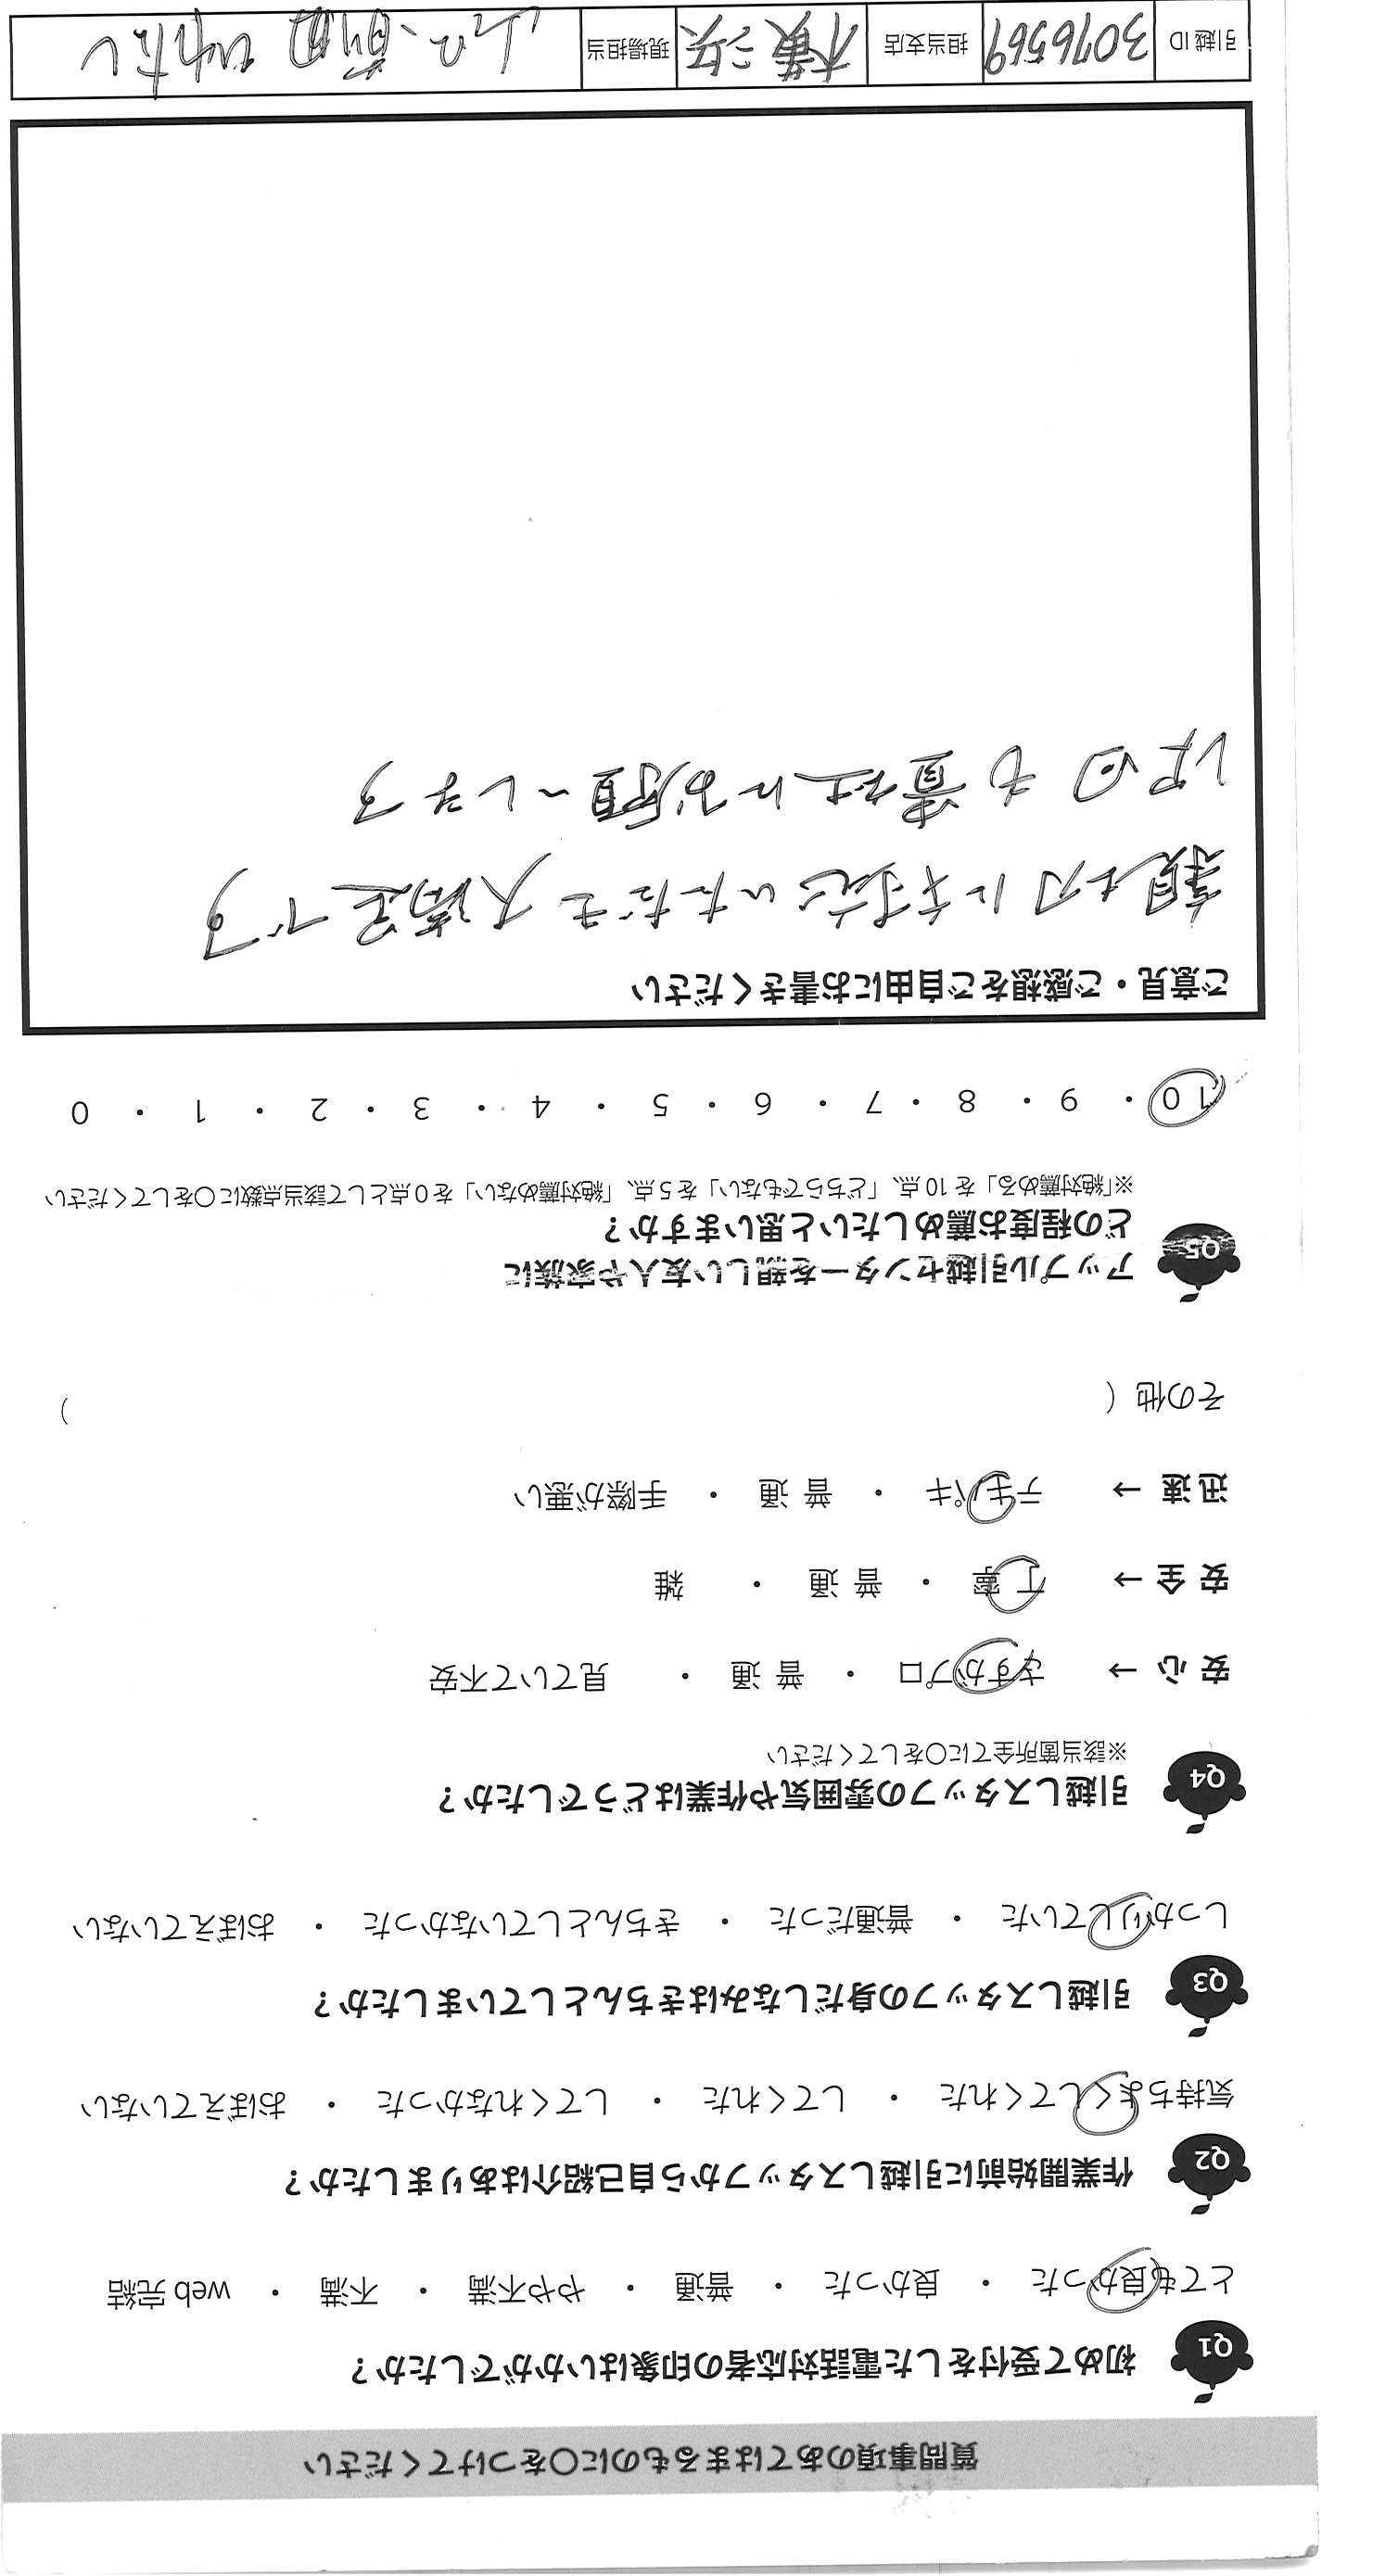 質問事項のあてはまるものに〇をつけてください
Q1 初めて受付をした電話対応者の印象はいかがでしたか？
とても良かった ・ 良かった ・ 普通 ・ やや不満 ・ 不満 ・ web 完結
Q2 作業開始前に引越しスタッフから自己紹介はありましたか？
気持ちよくしてくれた ・ してくれた ・ してくれなかった ・ おぼえていない
Q3 引越しスタッフの身だしなみはきちんとしていましたか？
しっかりしていた ・ 普通だった ・ きちんとしていなかった ・ おぼえていない
Q4 引越しスタッフの雰囲気や作業はどうでしたか？
※該当箇所全てに〇をしてください
安 心 → さすがプロ ・ 普 通 ・ 見ていて不安
安 全 → 丁 寧 ・ 普 通 ・ 雑
迅 速 → テキパキ ・ 普 通 ・ 手際が悪い
その他（ ）
Q5 アップル引越センターを親しい友人や家族に
どの程度お薦めしたいと思いますか？
※「絶対薦める」を 10 点、「どちらでもない」を 5 点、「絶対薦めない」を 0 点として該当点数に〇をしてください
10 ・ 9 ・ 8 ・ 7 ・ 6 ・ 5 ・ 4 ・ 3 ・ 2 ・ 1 ・ 0
ご意見・ご感想をご自由にお書きください
親切に対応いただき大満足です
次回も貴社にお願いします
引越 ID 3076569 担当支店 横浜 現場担当 前田